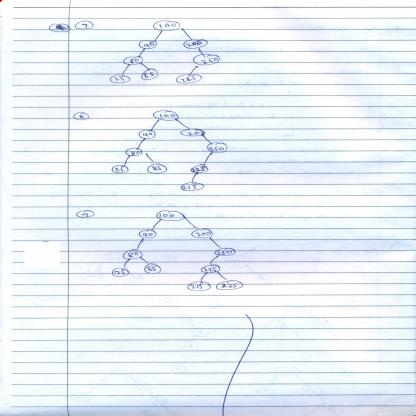 100
90 200
80 250
25 85 225
100
90 200
80 250
25 85 225
215
100
90 200
80 250
25 85 225
215 235